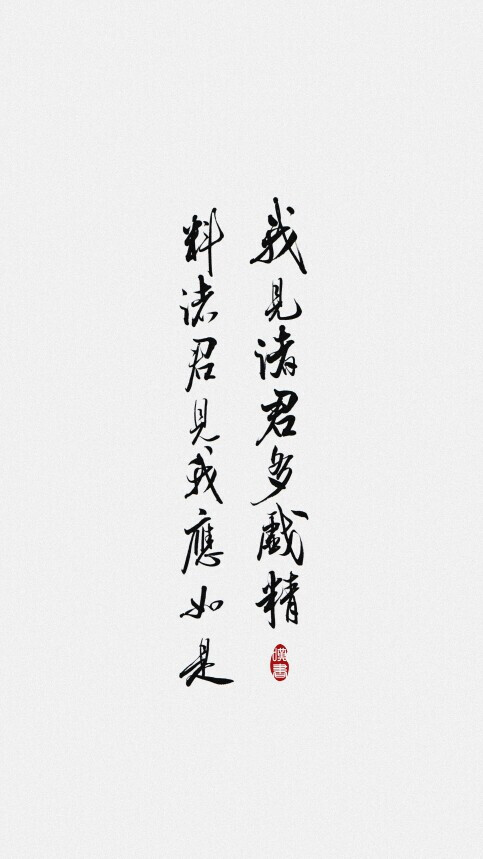 我見諸君多戲精
料諸君見我應如是